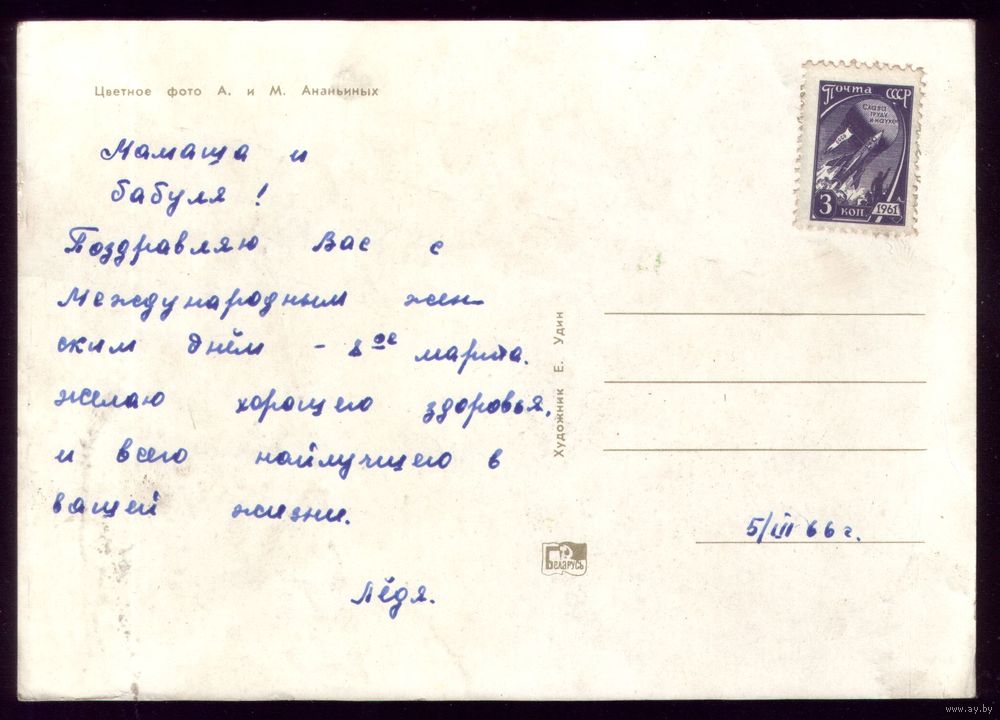 Цветное фото А. и М. Ананьиных
Мамаша и
бабуля!
Поздравляю Вас с
Международным жен-
ским днём - 8ое марта.
желаю хорошего здоровья,
и всего найлучшего в
вашей жизни.
Лёдя.
Почта СССР
Слава
труду
и науке
3 коп.
1961
Художник Е. Удин
Беларусь
5/III 66 г.
www.ay.by